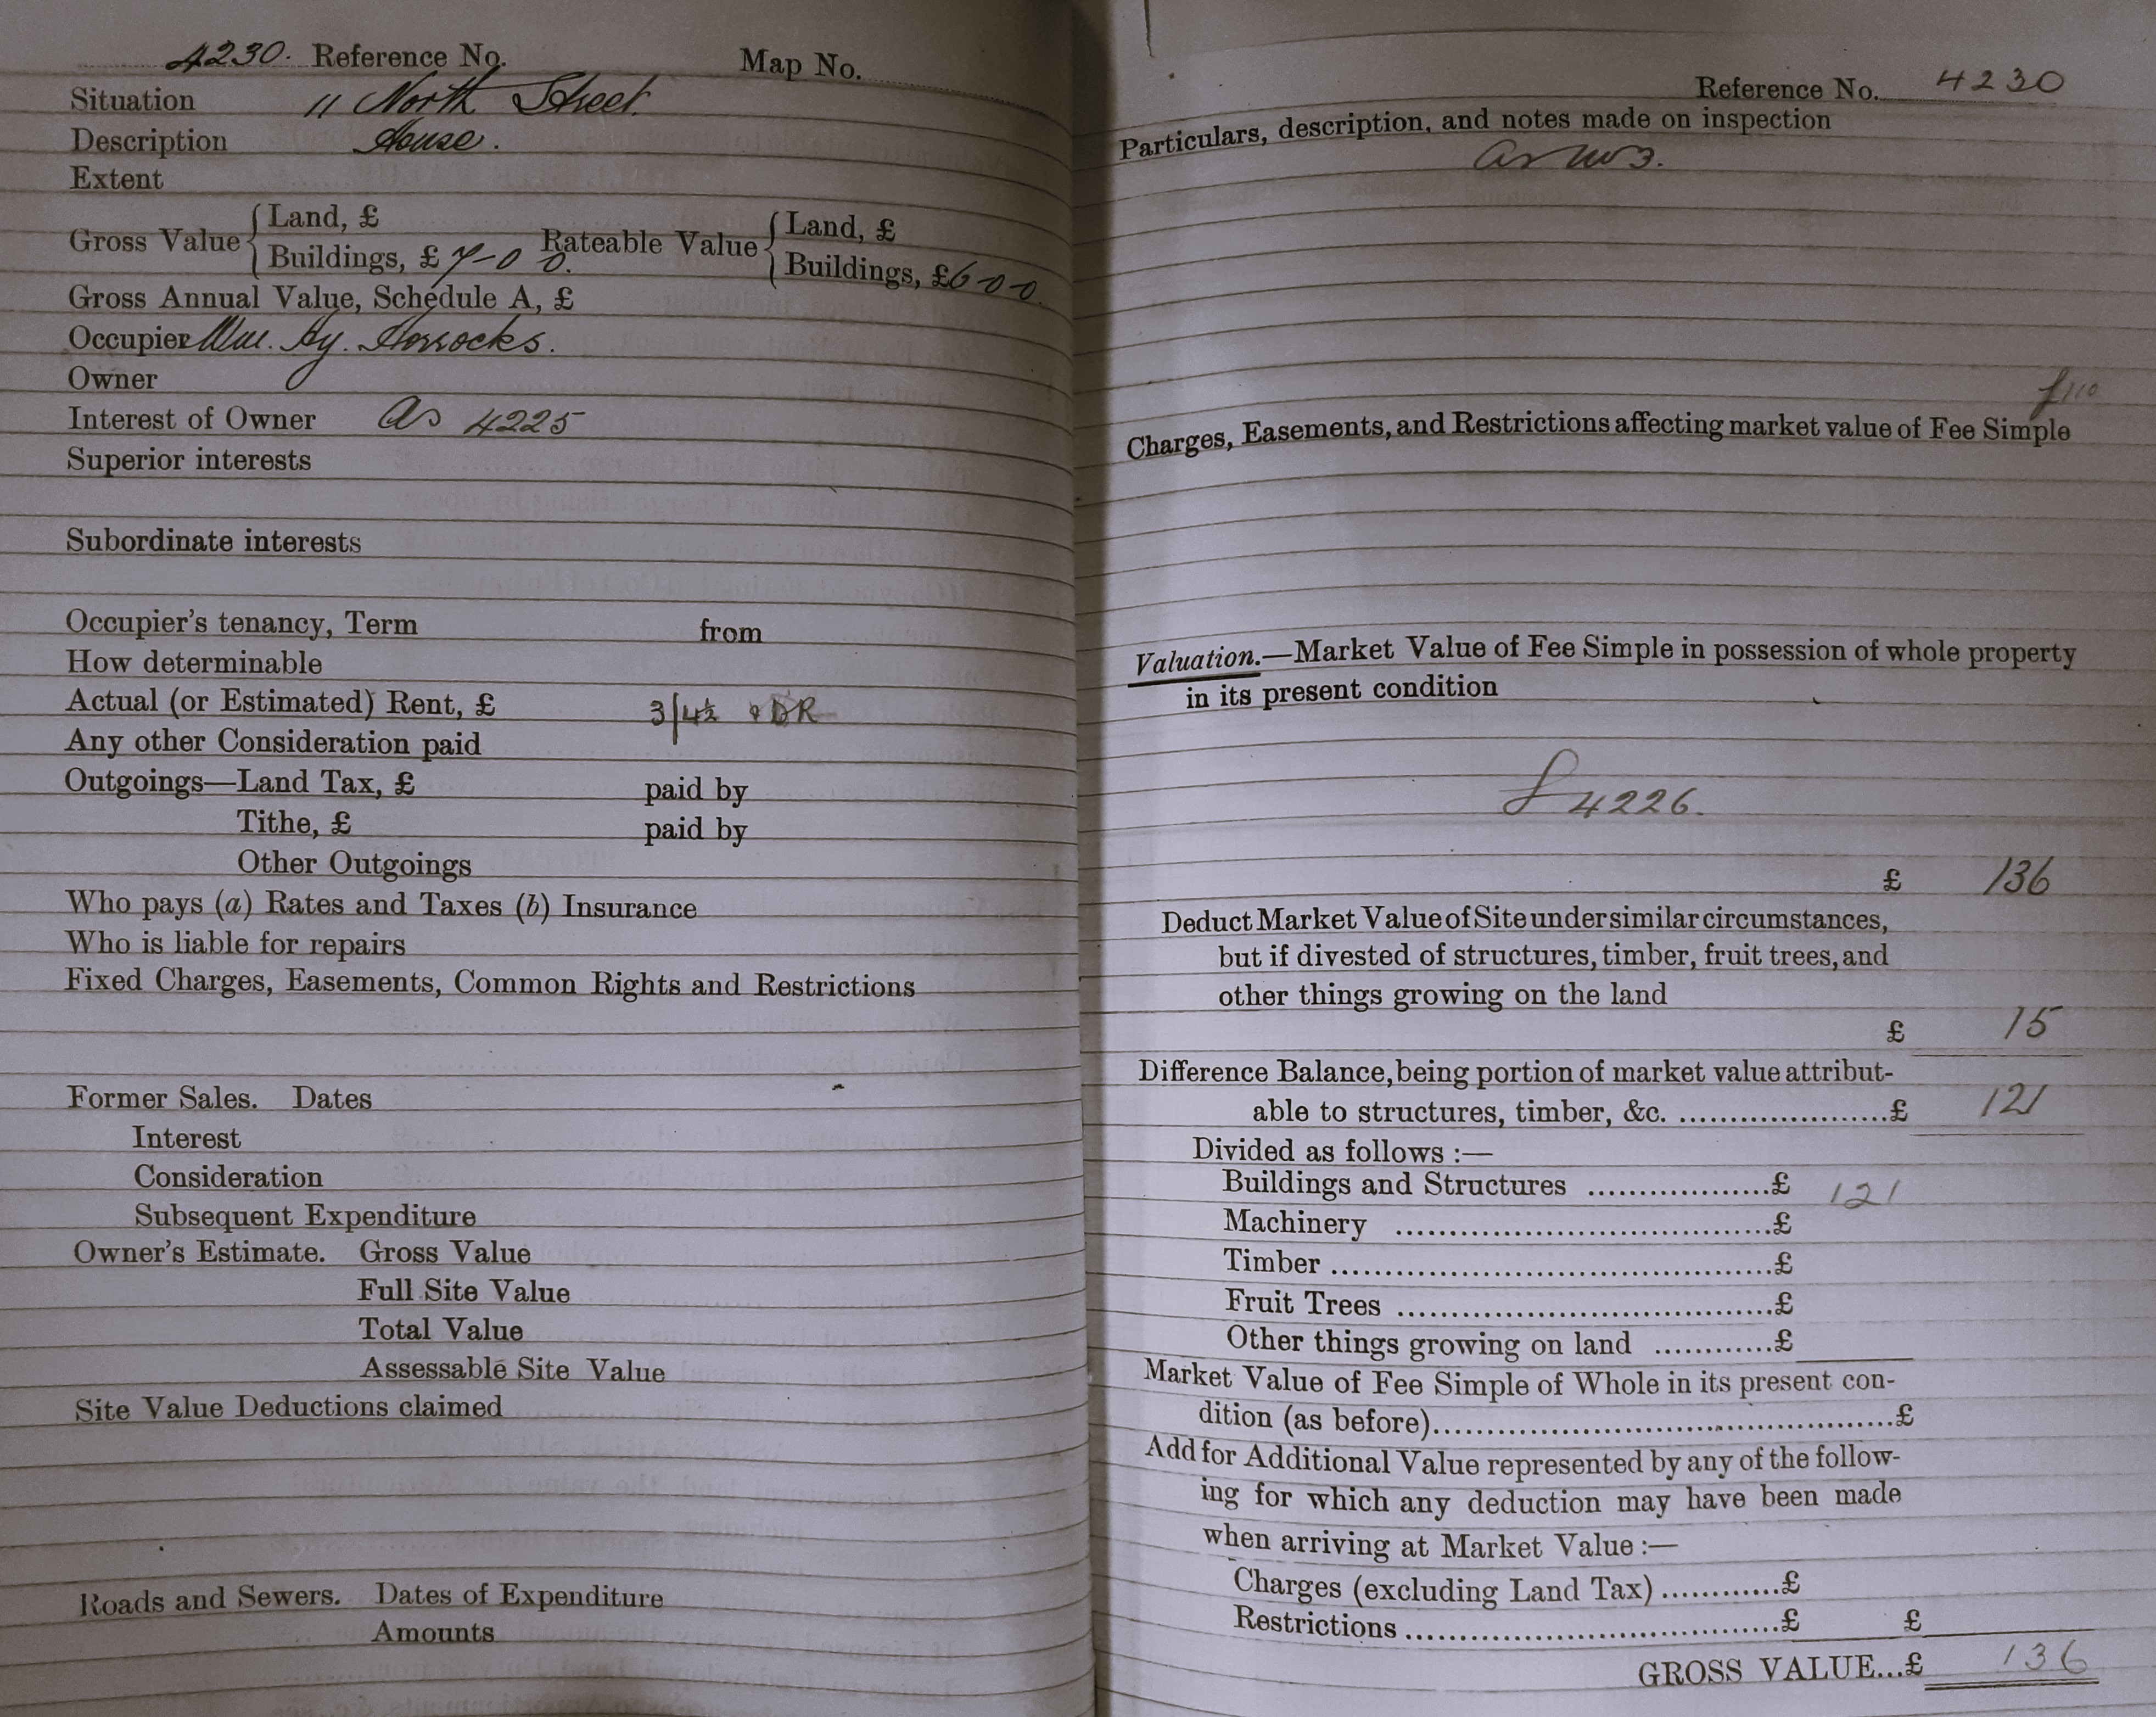 4230. Reference No. Map No.
Situation 11 North Street.
Description House.
Extent
Gross Value { Land, £ Rateable Value { Land, £
Buildings, £ 7-0 0. Buildings, £ 6-0-0.
Gross Annual Value, Schedule A, £
Occupier Wm. Hy. Horrocks.
Owner
Interest of Owner As 4225
Superior interests
Subordinate interests
Occupier's tenancy, Term from
How determinable
Actual (or Estimated) Rent, £ 3/4½ & DR
Any other Consideration paid
Outgoings—Land Tax, £ paid by
Tithe, £ paid by
Other Outgoings
Who pays (a) Rates and Taxes (b) Insurance
Who is liable for repairs
Fixed Charges, Easements, Common Rights and Restrictions
Former Sales. Dates
Interest
Consideration
Subsequent Expenditure
Owner's Estimate. Gross Value
Full Site Value
Total Value
Assessable Site Value
Site Value Deductions claimed
Roads and Sewers. Dates of Expenditure
Amounts
Reference No. 4230
Particulars, description, and notes made on inspection
as
£110
Charges, Easements, and Restrictions affecting market value of Fee Simple
Valuation.—Market Value of Fee Simple in possession of whole property
in its present condition
4226.
£ 136
Deduct Market Value of Site under similar circumstances,
but if divested of structures, timber, fruit trees, and
other things growing on the land
£ 15
Difference Balance, being portion of market value attribut-
able to structures, timber, &c. ......................£ 121
Divided as follows :—
Buildings and Structures ...................£ 121
Machinery .......................................£
Timber ..............................................£
Fruit Trees .......................................£
Other things growing on land ............£
Market Value of Fee Simple of Whole in its present con-
dition (as before)................................................£
Add for Additional Value represented by any of the follow-
ing for which any deduction may have been made
when arriving at Market Value :—
Charges (excluding Land Tax) ............£
Restrictions .......................................£ £
GROSS VALUE...£ 136